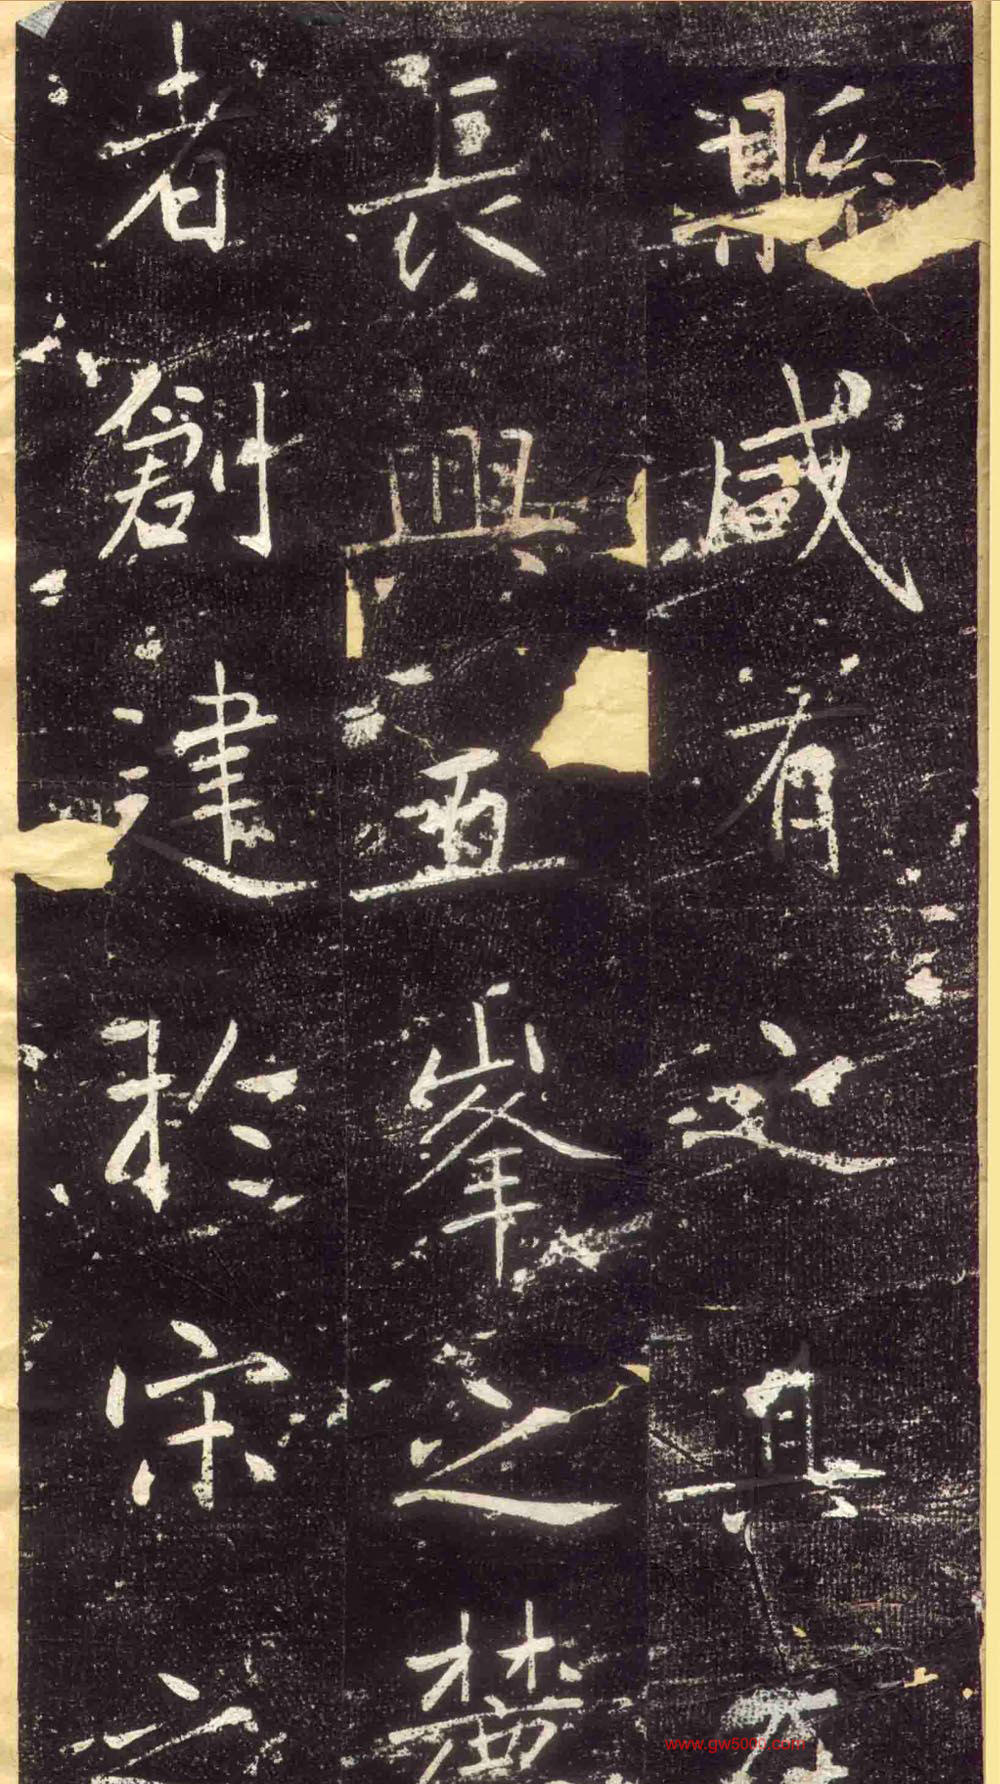 縣咸有之其
長興五峯之麓
者創建於宋
www.gw5000.com